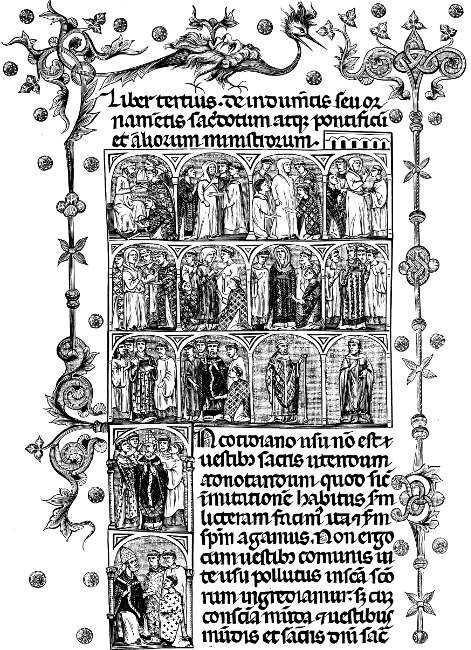 Liber tertius. de indumētis seu or
namētis sac̄dotum atqꝫ pontificū
et aliorum ministrorum.
N cotidiano usu nō est
vestibꝫ sacris utendum
adnotandum quod sic̄
īmutationē habitus
licteram facimꝰ ita ⁊
spm̄ agamus. Non ergo
cum vestibꝫ comunis ui
te usu pollutus in scā sco
rum ingrediamur. sꝫ cū
consciā mūda ⁊ vestibus
mūdis et sacris dn̄i sac̄